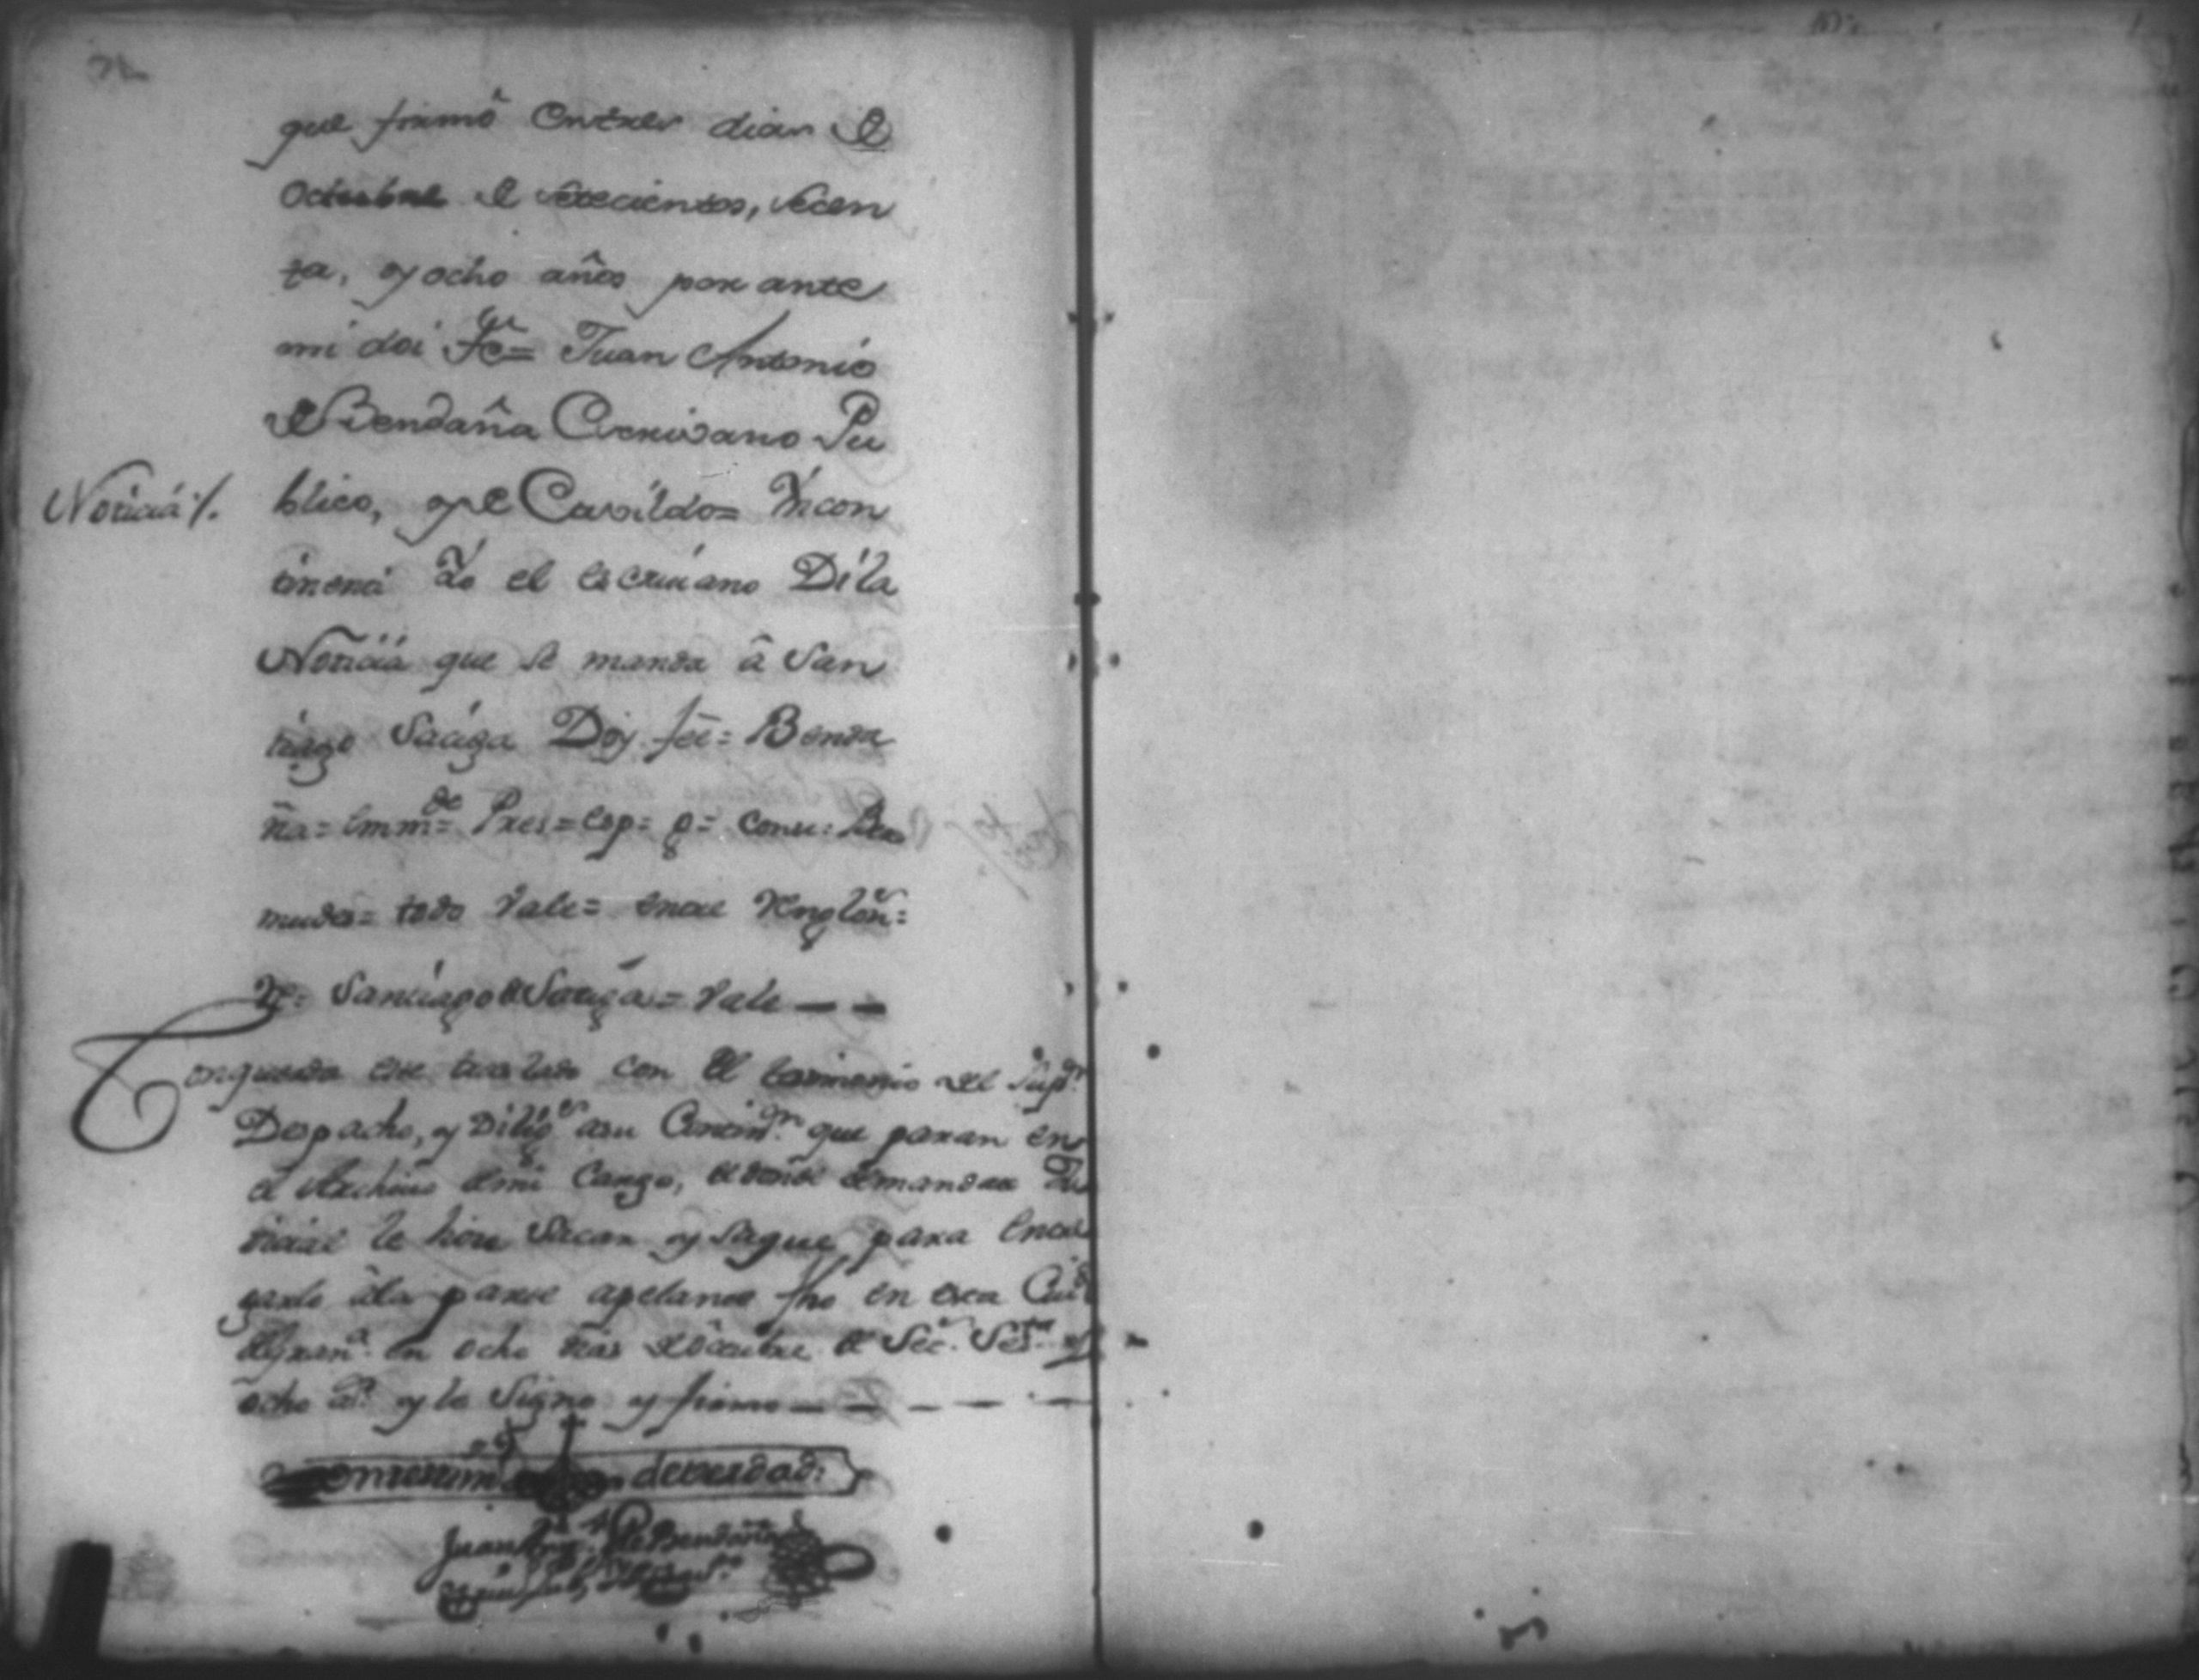 que firmô entres dias de
Octubre de setecientos, secen
ta, y ocho años por ante
mi doi fee= Juan Antonio
de Bendaña Escrivano Pu
Noticia /. blico, y de Cavildo= Yncon
tinenti Yo el escrivano Di la
Noticia que se manda â San
tiago Saciga Doy feè= Benda
ña= emm.de= Pres= esp= p= conu=
mudes= todo Vale= entre Renglon.s=
Santiago de Vale — —
Concuerda este traslado con el testimonio del Sup.or
Despacho, y Dilig.s asu Continu.n que paran en
el Archivo de mi Cargo, de donde de mandato Ju
dicial le hize Sacar y Saque, para entre
garlo âla parte apelante fho en esta Ciu.d
de Gran.a en ocho dias de Octubre de Set.s Ses.ta y
ocho a.s y lo Signo y firmo — — — — —
en testim.o de verdad:
Juan Ant.o de Bendaña